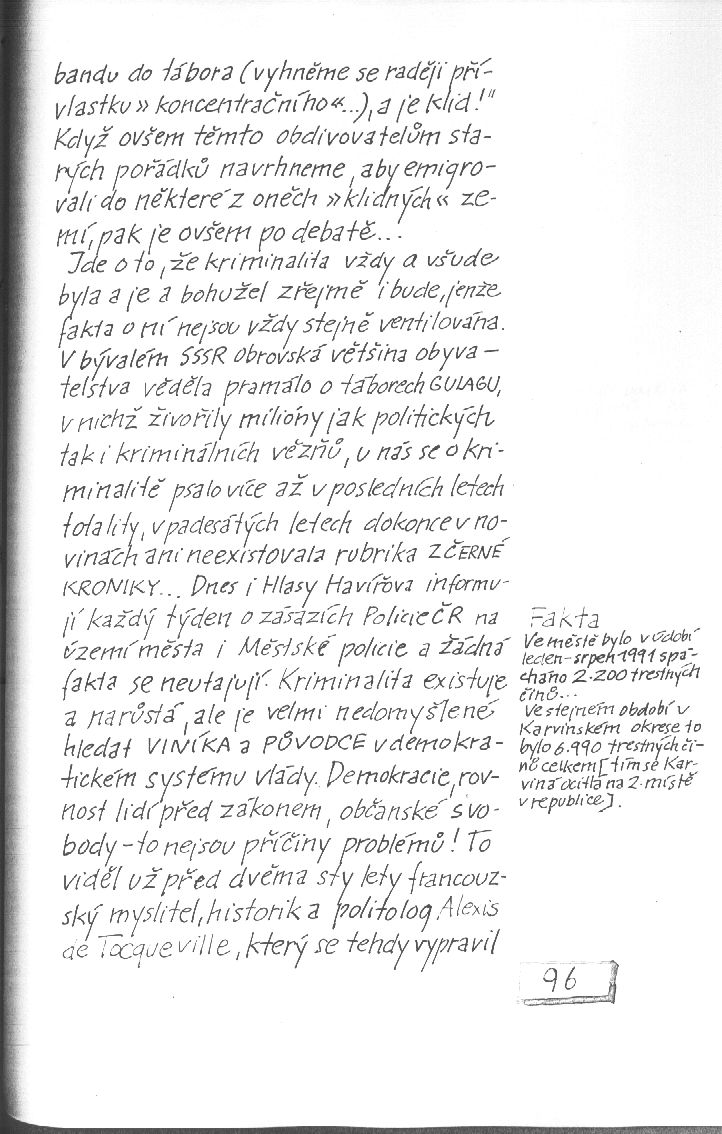 bandu do tábora (vyhněme se raději pří-
vlastku » koncentračního «...), a je klid!"
Když ovšem těmto obdivovatelům sta-
rých pořádků navrhneme, aby emigro-
vali do některé z oněch »klidných« ze-
mí, pak je ovšem po debatě...
Jde o to, že kriminalita vždy a všude
byla a je a bohužel zřejmě i bude, jenže
fakta o ní nejsou vždy stejně ventilována.
V bývalém SSSR obrovská většina obyva-
telstva věděla pramálo o táborech GULAGU,
v nichž živořily milióny jak politických
tak i kriminálních vězňů, u nás se o kri-
minalitě psalo více až v posledních letech
totality, v padesátých letech dokonce v no-
vinách ani neexistovala rubrika Z ČERNÉ
KRONIKY... Dnes i Hlasy Havířova informu-
jí každý týden o zásazích Policie ČR na
území města i Městské policie a žádná
fakta se neutajují. Kriminalita existuje
a narůstá, ale je velmi nedomyšlené
hledat VINÍKA a PŮVODCE v demokra-
tickém systému vlády. Demokracie, rov-
nost lidí před zákonem, občanské svo-
body - to nejsou příčiny problémů! To
viděl už před dvěma sty lety francouz-
ský myslitel, historik a politolog Alexis
de Tocqueville, který se tehdy vypravil
Fakta
Ve městě bylo v období
leden-srpen 1991 spá-
cháno 2.200 trestných
činů...
Ve stejném období v
Karvinském okrese to
bylo 6.990 trestných či-
nů celkem [tím se Kar-
viná ocitla na 2. místě
v republice].
96